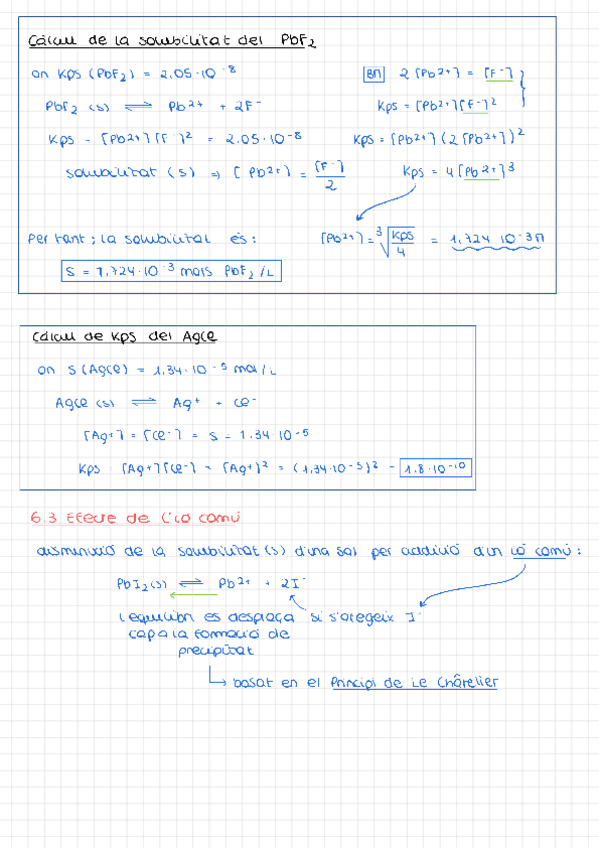 Càlcul de la solubilitat del PbF₂
on Kps (PbF₂) = 2.05·10⁻⁸
BM 2[Pb²⁺] = [F⁻]
PbF₂ (s) ⇌ Pb²⁺ + 2F⁻
Kps = [Pb²⁺][F⁻]²
Kps = [Pb²⁺][F⁻]² = 2.05·10⁻⁸
Kps = [Pb²⁺](2[Pb²⁺])²
solubilitat (s) ⇒ [Pb²⁺] = [F⁻]/2
Kps = 4[Pb²⁺]³
Per tant; la solubilitat és:
[Pb²⁺] = ∛(Kps/4) = 1.724 10⁻³M
s = 1.724·10⁻³ mols PbF₂/L
Càlcul de Kps del AgCl
on s(AgCl) = 1.34·10⁻⁵ mol/L
AgCl (s) ⇌ Ag⁺ + Cl⁻
[Ag⁺] = [Cl⁻] = s = 1.34·10⁻⁵
Kps = [Ag⁺][Cl⁻] = [Ag⁺]² = (1.34·10⁻⁵)² = 1.8·10⁻¹⁰
6.3 Efecte de l'ió comú
disminució de la solubilitat (s) d'una sal per addició d'un ió comú:
PbI₂(s) ⇌ Pb²⁺ + 2I⁻
l'equilibri es desplaça si s'afegeix I⁻
cap a la formació de
precipitat
basat en el Principi de Le Châtelier